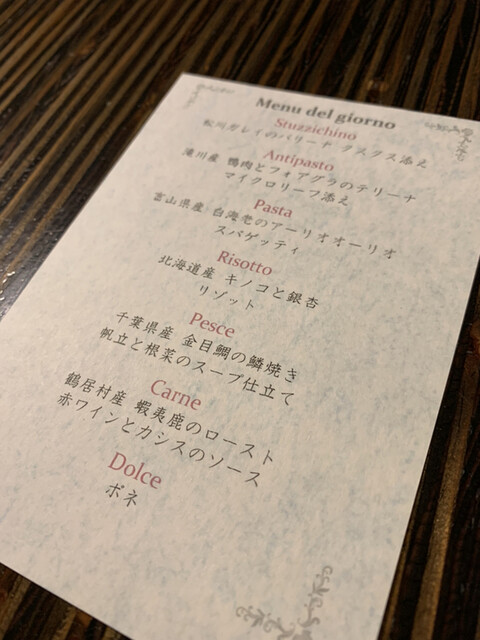 Menu del giorno
Stuzzichino
松川ガレイのバリーナ クスクス添え
Antipasto
滝川産 鴨肉とフォアグラのテリーナ
マイクロリーフ添え
Pasta
富山県産 白海老のアーリオオーリオ
スパゲッティ
Risotto
北海道産 キノコと銀杏
リゾット
Pesce
千葉県産 金目鯛の鱗焼き
帆立と根菜のスープ仕立て
Carne
鶴居村産 蝦夷鹿のロースト
赤ワインとカシスのソース
Dolce
ボネ